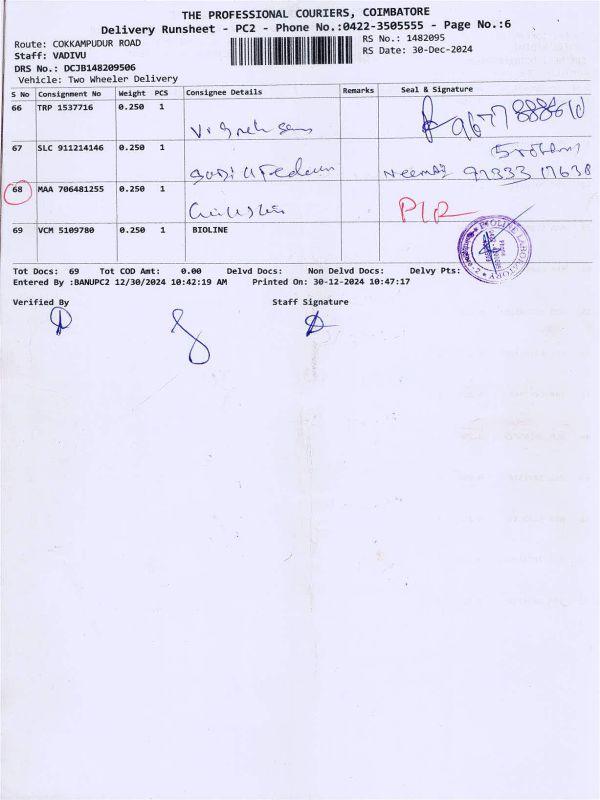 THE PROFESSIONAL COURIERS, COIMBATORE
Delivery Runsheet - PC2 - Phone No.:0422-3505555 - Page No.:6
Route: COKKAMPUDUR ROAD
RS No.: 1482095
Staff: VADIVU
RS Date: 30-Dec-2024
DRS No.: DCJB148209506
Vehicle: Two Wheeler Delivery
S No Consignment No Weight PCS Consignee Details Remarks Seal & Signature
66 TRP 1537716 0.250 1
67 SLC 911214146 0.250 1
68 MAA 706481255 0.250 1
69 VCM 5109780 0.250 1 BIOLINE
BIOLINE LABORATORY
Tot Docs: 69 Tot COD Amt: 0.00 Delvd Docs: Non Delvd Docs: Delvy Pts:
Entered By :BANUPC2 12/30/2024 10:42:19 AM Printed On: 30-12-2024 10:47:17
Verified By Staff Signature